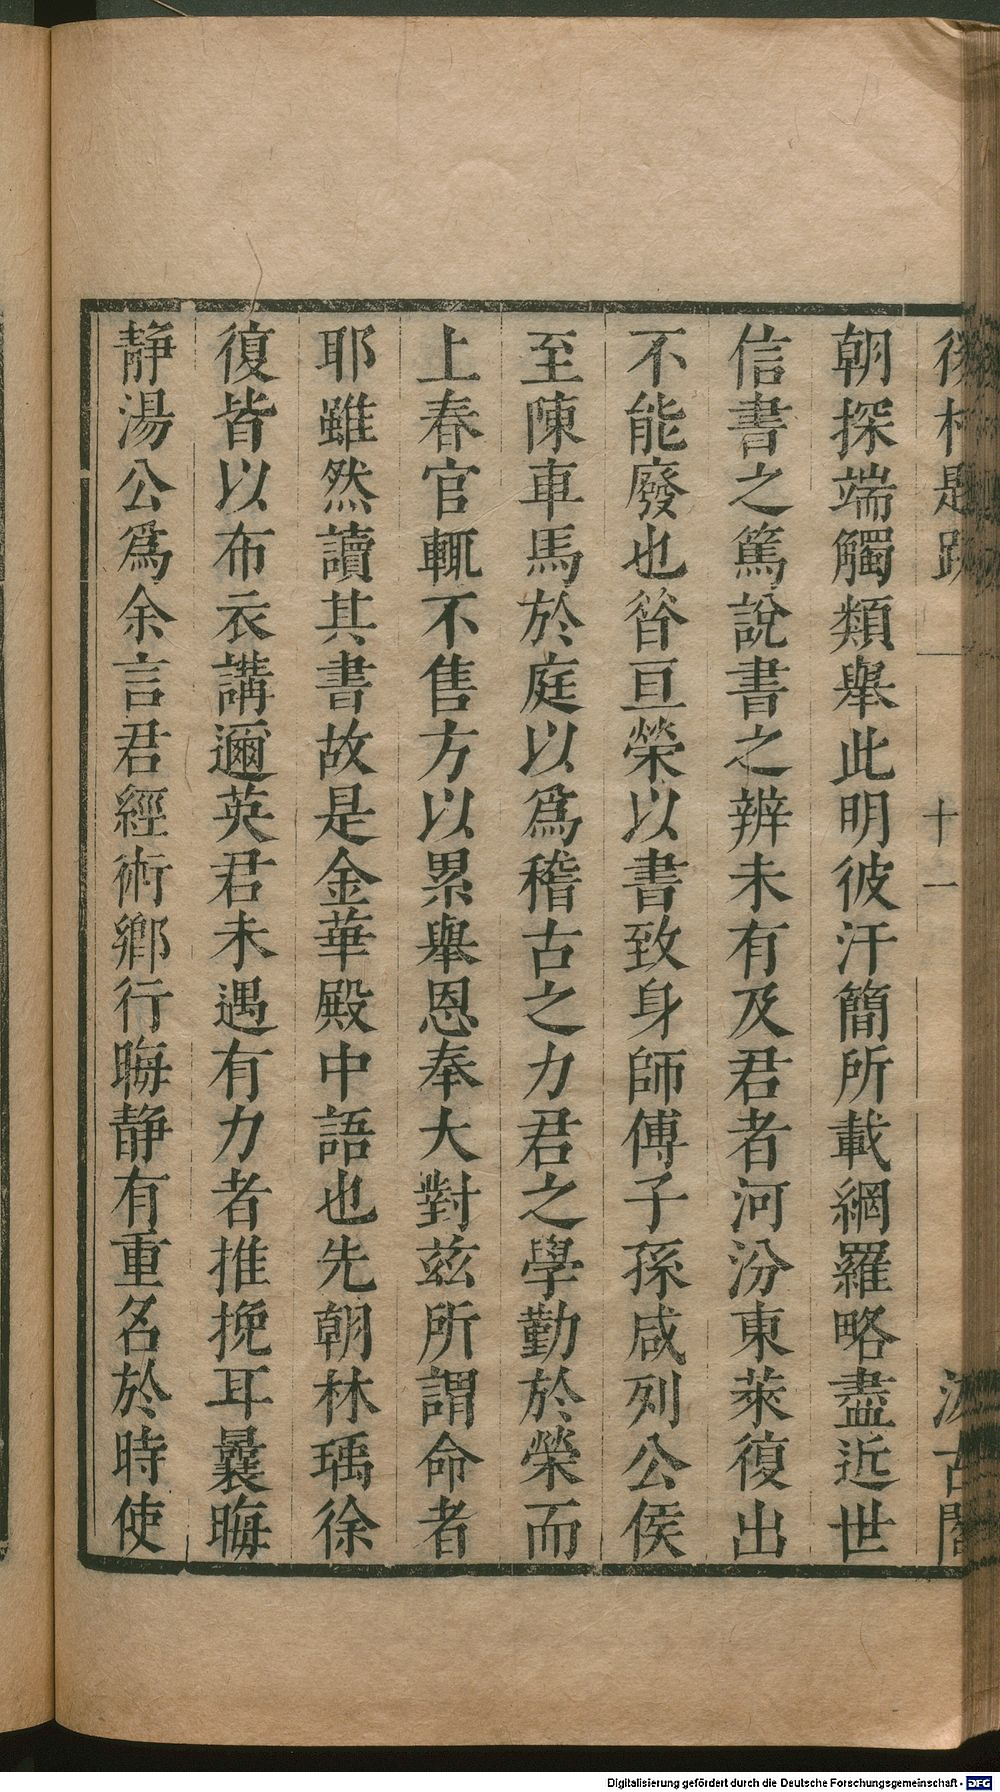 後村題跋
十一
汲古閣
朝探端觸類舉此明彼汗簡所載網羅略盡近世
信書之篤說書之辨未有及君者河汾東萊復出
不能廢也昝亘榮以書致身師傅子孫咸列公侯
至陳車馬於庭以爲稽古之力君之學勤於榮而
上春官輒不售方以累舉恩奉大對茲所謂命者
耶雖然讀其書故是金華殿中語也先朝林瑀徐
復皆以布衣講邇英君未遇有力者推挽耳曩晦
靜湯公爲余言君經術鄉行晦靜有重名於時使
Digitalisierung gefördert durch die Deutsche Forschungsgemeinschaft - DFG